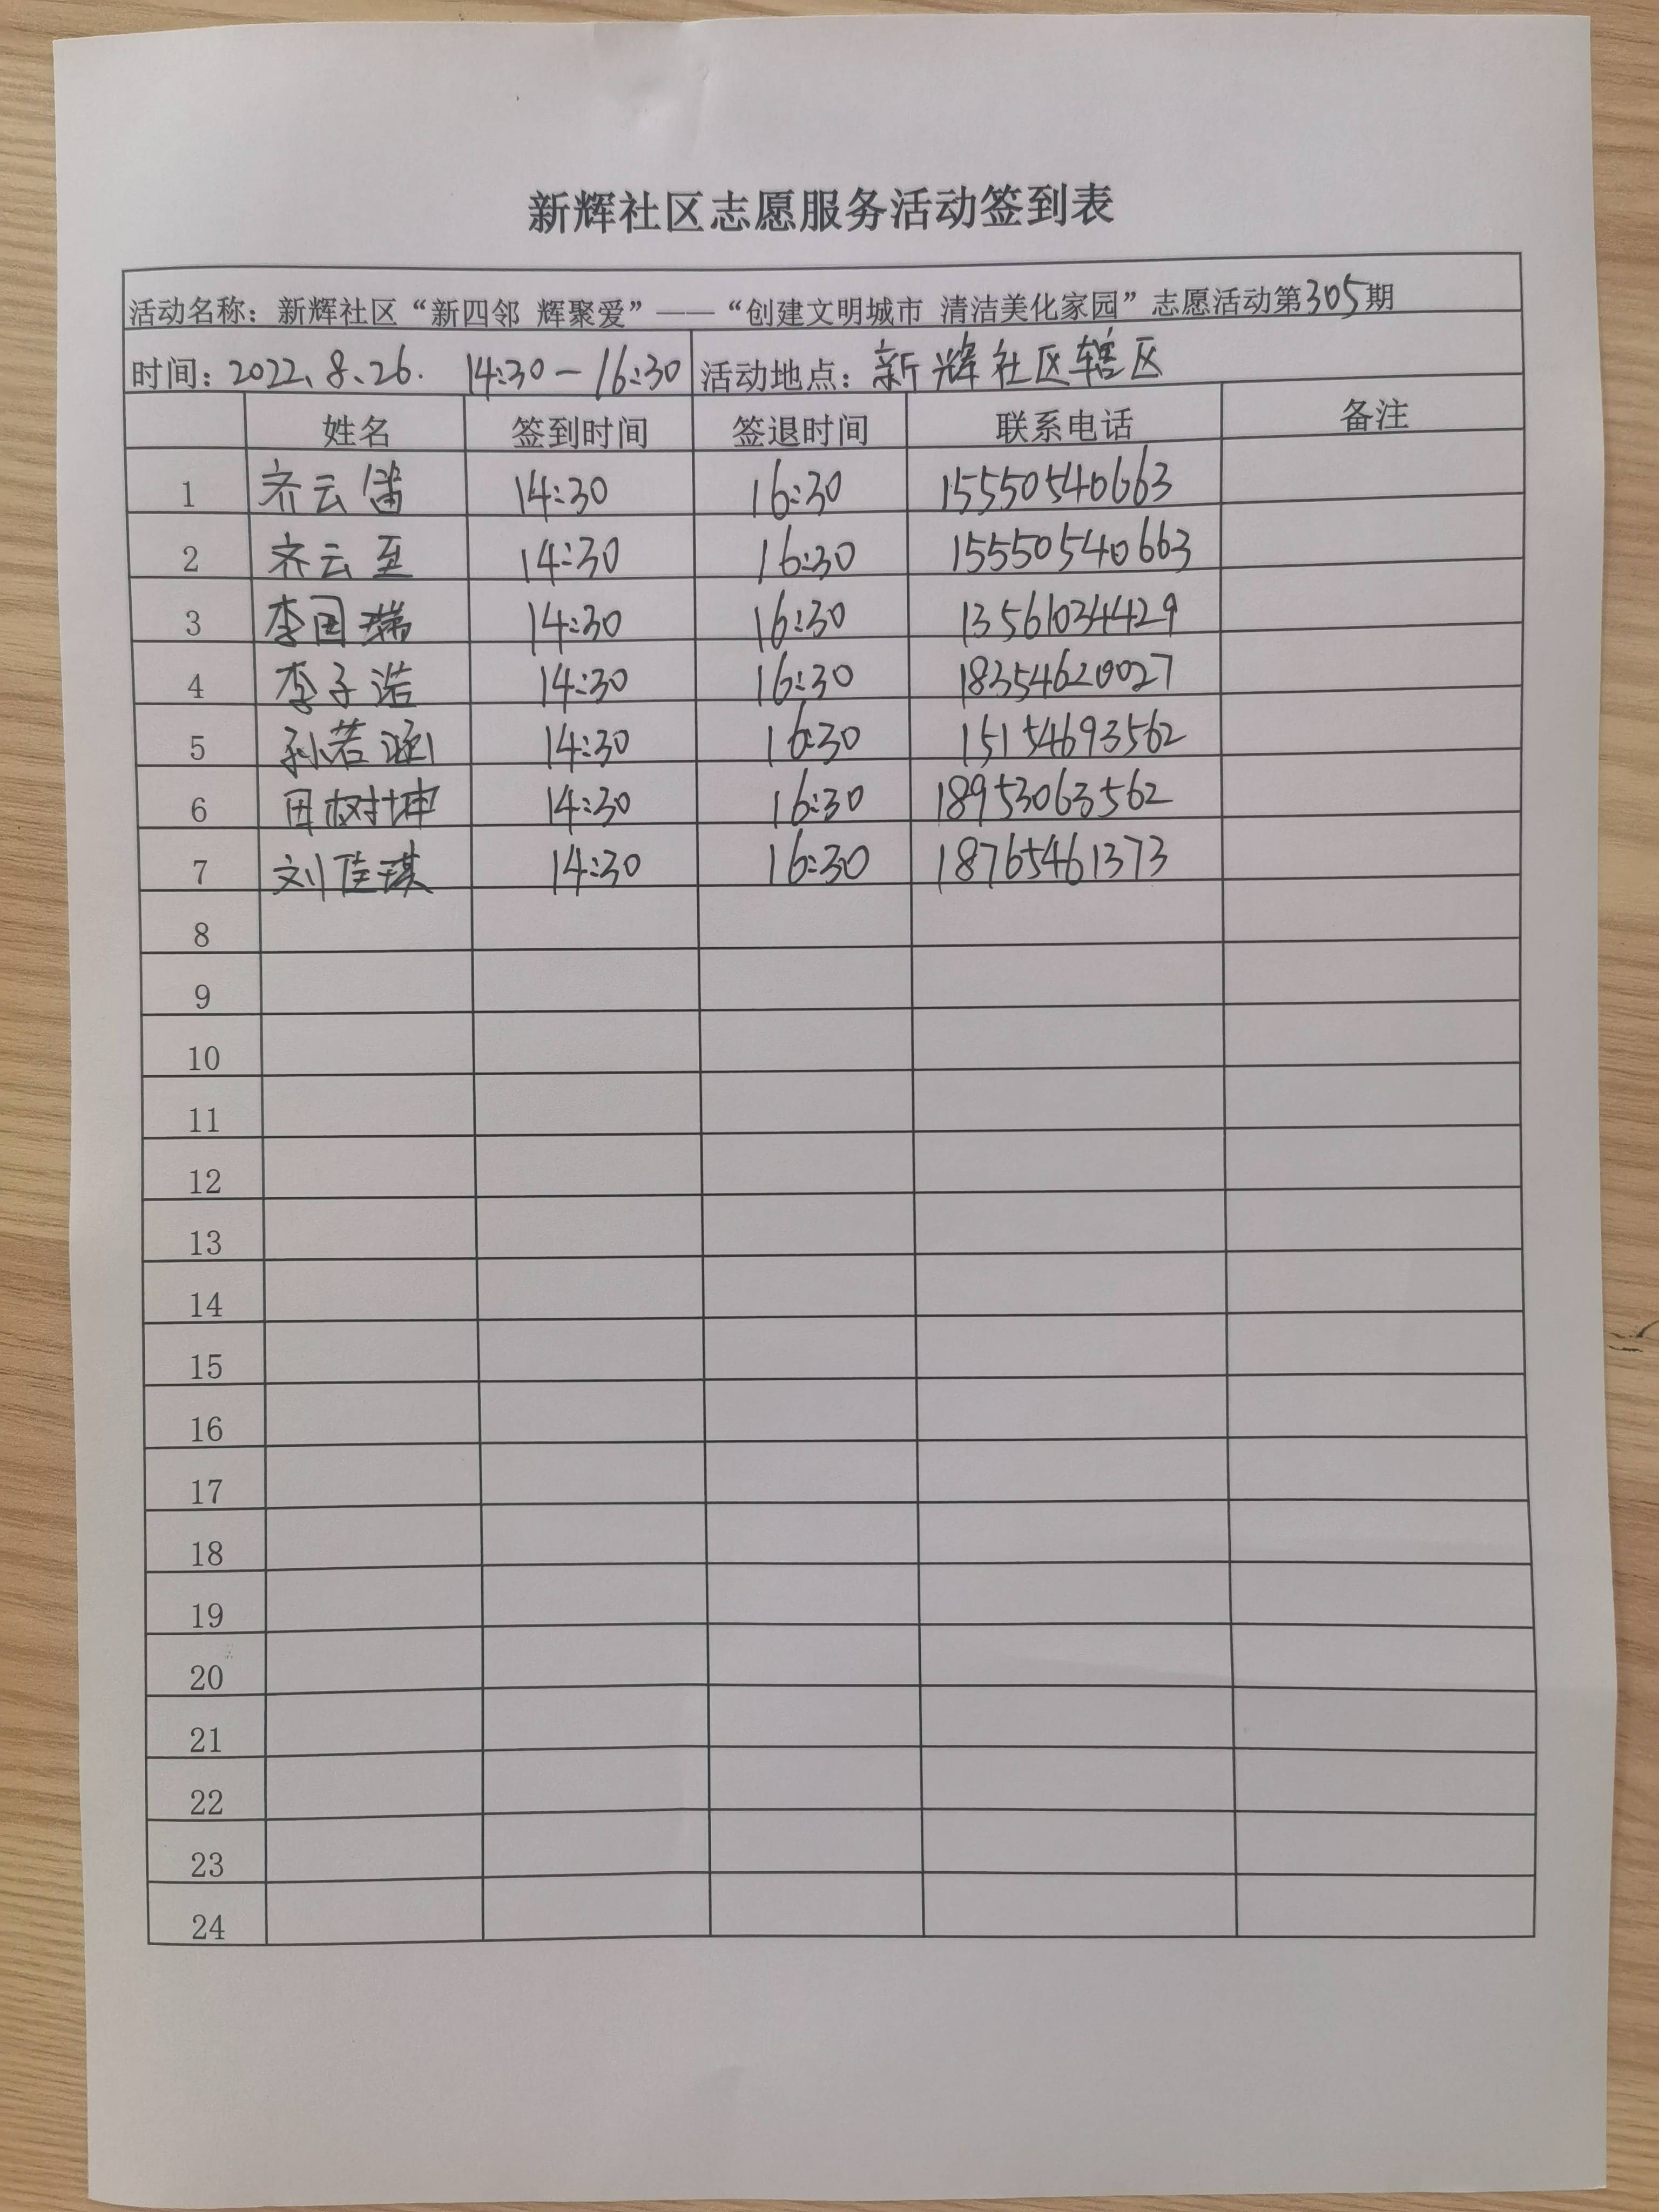 新辉社区志愿服务活动签到表
活动名称：新辉社区“新四邻 辉聚爱”——“创建文明城市 清洁美化家园”志愿活动第305期
时间：2022、8、26. 14:30－16:30 活动地点：新辉社区辖区
姓名 签到时间 签退时间 联系电话 备注
1 齐云 14:30 16:30 15550540663
2 齐云至 14:30 16:30 15550540663
3 李国瑞 14:30 16:30 13561034429
4 李子诺 14:30 16:30 18354620027
5 孙若涵 14:30 16:30 15154693562
6 田树坤 14:30 16:30 18953063562
7 刘佳琪 14:30 16:30 18765461373
8
9
10
11
12
13
14
15
16
17
18
19
20
21
22
23
24